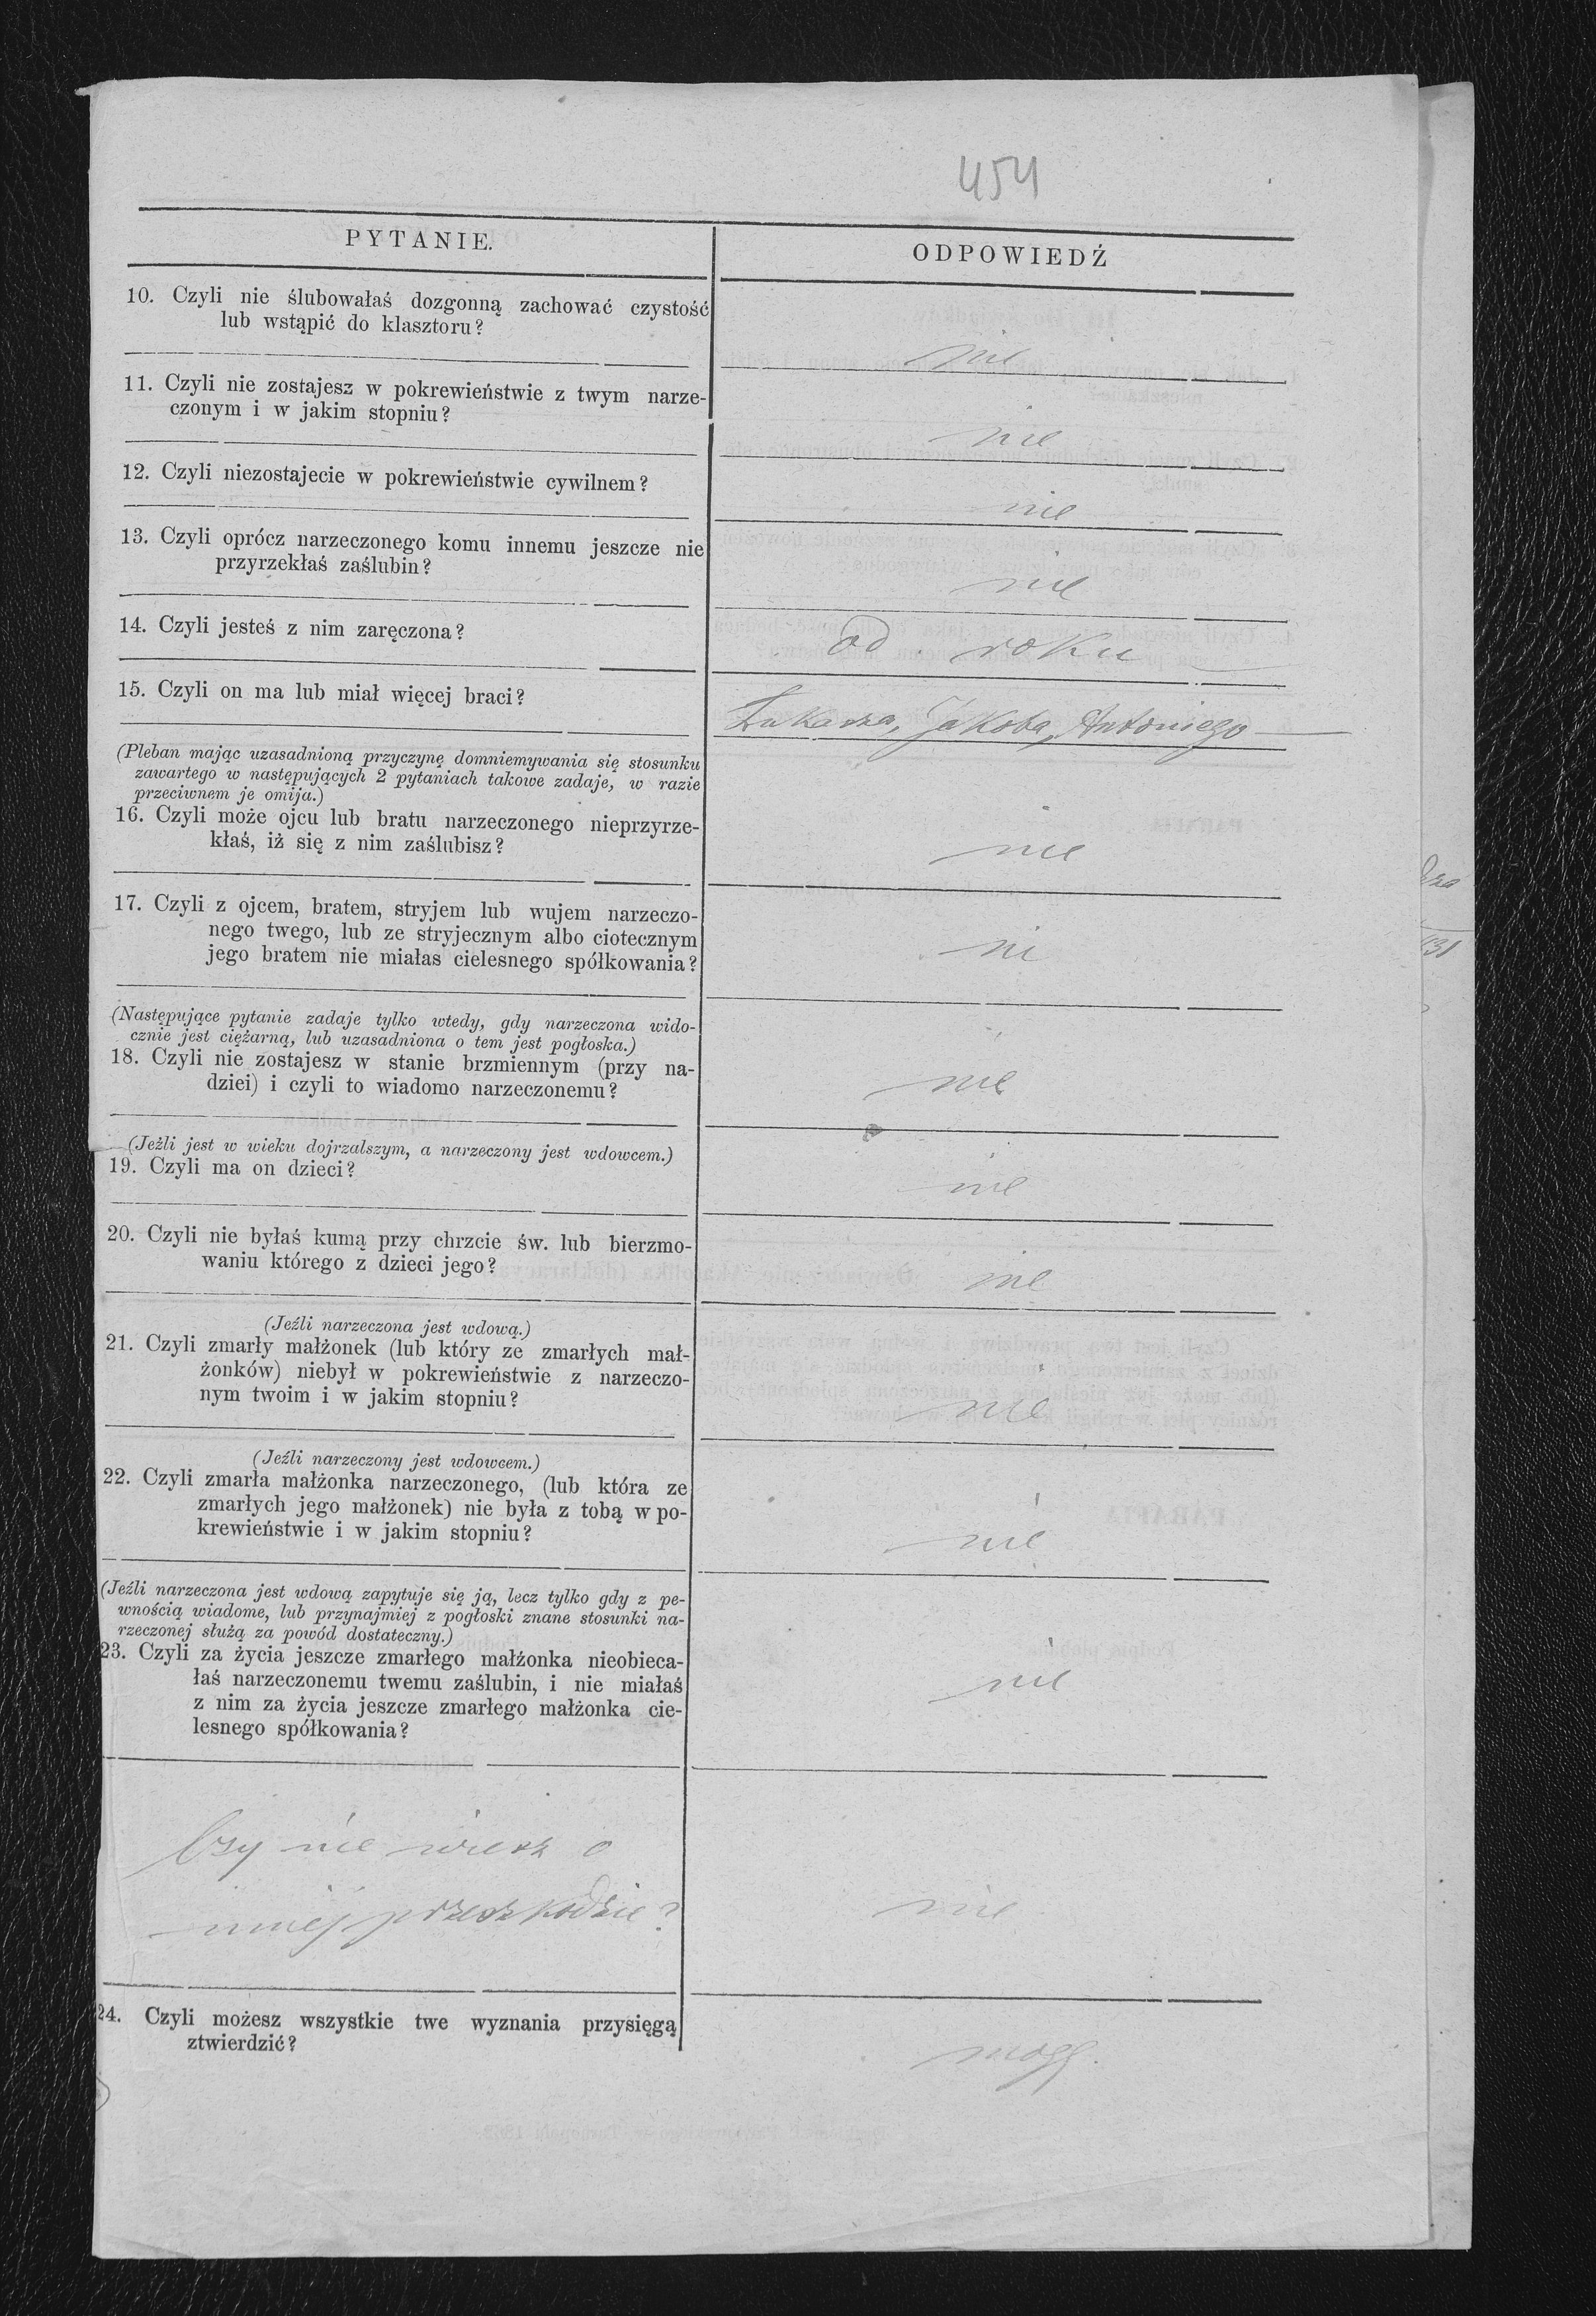 454
PYTANIE.
ODPOWIEDŹ
10. Czyli nie ślubowałaś dozgonną zachować czystość
lub wstąpić do klasztoru?
nie
11. Czyli nie zostajesz w pokrewieństwie z twym narze-
czonym i w jakim stopniu?
nie
12. Czyli niezostajecie w pokrewieństwie cywilnem?
nie
13. Czyli oprócz narzeczonego komu innemu jeszcze nie
przyrzekłaś zaślubin?
nie
14. Czyli jesteś z nim zaręczona?
od roku
15. Czyli on ma lub miał więcej braci?
Łukasza, Jakoba, Antoniego
(Pleban mając uzasadnioną przyczynę domniemywania się stosunku
zawartego w następujących 2 pytaniach takowe zadaje, w razie
przeciwnem je omija.)
16. Czyli może ojcu lub bratu narzeczonego nieprzyrze-
kłaś, iż się z nim zaślubisz?
nie
17. Czyli z ojcem, bratem, stryjem lub wujem narzeczo-
nego twego, lub ze stryjecznym albo ciotecznym
jego bratem nie miałas cielesnego spółkowania?
ni
(Następujące pytanie zadaje tylko wtedy, gdy narzeczona wido-
cznie jest ciężarną, lub uzasadniona o tem jest pogłoska.)
18. Czyli nie zostajesz w stanie brzmiennym (przy na-
dziei) i czyli to wiadomo narzeczonemu?
nie
(Jeżli jest w wieku dojrzalszym, a narzeczony jest wdowcem.)
19. Czyli ma on dzieci?
nie
20. Czyli nie byłaś kumą przy chrzcie św. lub bierzmo-
waniu którego z dzieci jego?
nie
(Jeźli narzeczona jest wdową.)
21. Czyli zmarły małżonek (lub który ze zmarłych mał-
żonków) niebył w pokrewieństwie z narzeczo-
nym twoim i w jakim stopniu?
nie
(Jeźli narzeczony jest wdowcem.)
22. Czyli zmarła małżonka narzeczonego, (lub która ze
zmarłych jego małżonek) nie była z tobą w po-
krewieństwie i w jakim stopniu?
nie
(Jeźli narzeczona jest wdową zapytuje się ją, lecz tylko gdy z pe-
wnością wiadome, lub przynajmiej z pogłoski znane stosunki na-
rzeczonej służą za powód dostateczny.)
23. Czyli za życia jeszcze zmarłego małżonka nieobieca-
łaś narzeczonemu twemu zaślubin, i nie miałaś
z nim za życia jeszcze zmarłego małżonka cie-
lesnego spółkowania?
nie
Czy nie wiesz o
przeszkodzie?
nie
24. Czyli możesz wszystkie twe wyznania przysięgą
ztwierdzić?
mogę.